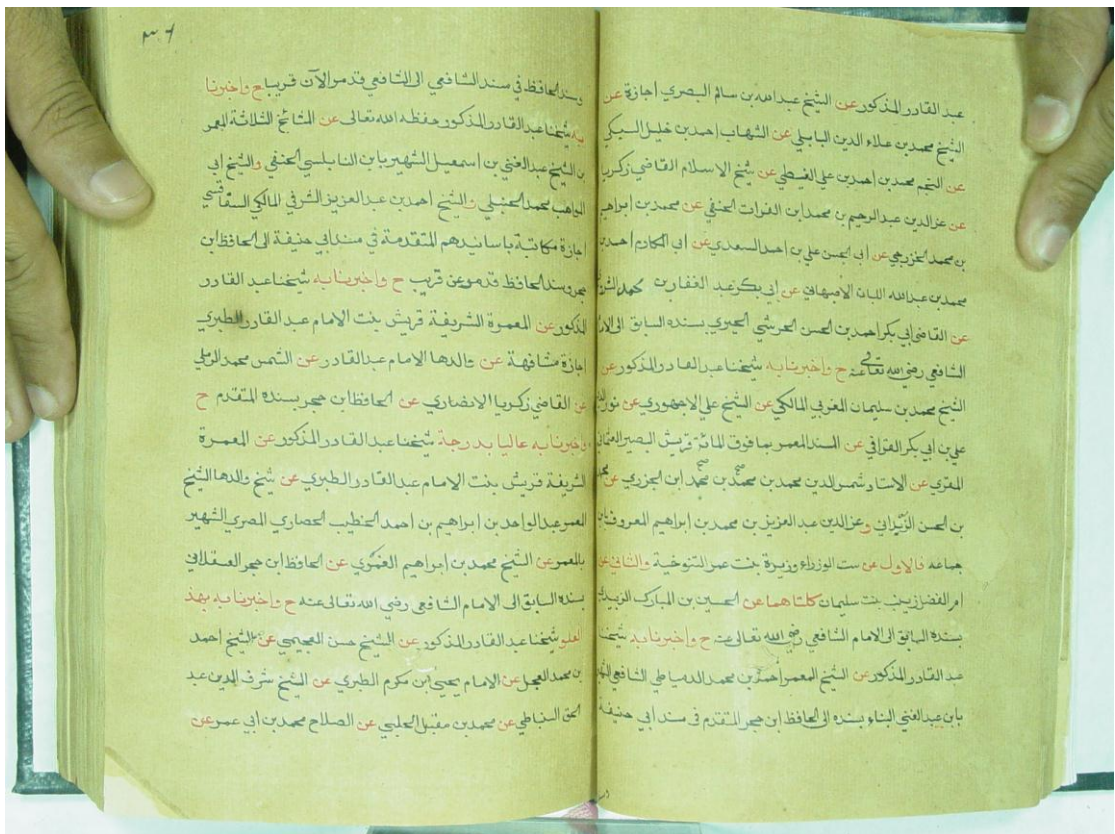 عبد القادر المذكور عن الشيخ عبد الله بن سالم البصري اجازة عن
الشيخ محمد بن علاء الدين البابلي عن الشهاب احمد بن خليل السبكي
عن النجم محمد بن احمد بن علي الغيطي عن شيخ الاسلام القاضي زكريا
عن عز الدين عبد الرحيم بن محمد ابن الفرات الحنفي عن محمد بن ابراهيم
بن محمد الخزرجي عن ابي الحسن علي بن احمد السعدي عن ابي المكارم احمد بن
محمد بن عبد الله اللبان الاصبهاني عن ابي بكر عبد الغفار بن محمد
عن القاضي ابي بكر احمد بن الحسن الحرشي الحيري بسنده السابق الى
الشافعي رضي الله تعالى عنه ح واخبرنا به شيخنا عبد القادر المذكور عن
الشيخ محمد بن سليمان المغربي المالكي عن الشيخ علي الاجهوري عن نور
علي بن ابي بكر القرافي عن المسند المعمر بما فوق المائة قريش البصير العثماني
المقري عن الاستاد شمس الدين محمد بن محمد بن محمد ابن الجزري عن
بن الحسن وعز الدين عبد العزيز بن محمد بن ابراهيم المعروف بابن
جماعه فالاول عن ست الوزراء وزيرة بنت عمر التنوخية والثاني عن
ام الفضل زينب بنت سليمان كلتاهما عن الحسين بن المبارك الزبيدي
بسنده السابق الى الامام الشافعي رضي الله تعالى عنه ح واخبرنا به شيخنا
عبد القادر المذكور عن الشيخ المعمر احمد بن محمد الدمياطي الشافعي الشهير
بابن عبد الغني البناء بسنده الى الحافظ ابن حجر المتقدم في سند ابي حنيفة
٣٦
وسند الحافظ في سند الشافعي الى الشافعي قد مر الآن قريبا ح واخبرنا
به شيخنا عبد القادر المذكور حفظه الله تعالى عن المشائخ الثلاثة المعمر
بن الشيخ عبد الغني بن اسمعيل الشهير بابن النابلسي الحنفي والشيخ ابي
المواهب محمد الحنبلي والشيخ احمد بن عبد العزيز الشرفي المالكي السفاقسي
اجازة مكاتبة باسانيدهم المتقدمة في سند ابي حنيفة الى الحافظ ابن
حجر وسند الحافظ قد مر عن قريب ح واخبرنا به شيخنا عبد القادر
المذكور عن المعمرة الشريفة قريش بنت الامام عبد القادر الطبري
اجازة مشافهة عن والدها الامام عبد القادر عن الشمس محمد الرملي
عن القاضي زكريا الانصاري عن الحافظ ابن حجر بسنده المتقدم ح
واخبرنا به عاليا بدرجة شيخنا عبد القادر المذكور عن المعمرة
الشريفة قريش بنت الامام عبد القادر الطبري عن شيخ والدها الشيخ
المعمر عبد الواحد بن ابراهيم بن احمد الخطيب الحصاري المصري الشهير
بالمعمر عن الشيخ محمد بن ابراهيم الغمري عن الحافظ ابن حجر العسقلاني
بسنده السابق الى الامام الشافعي رضي الله تعالى عنه ح واخبرنا به بهذ
العلو شيخنا عبد القادر المذكور عن الشيخ حسن العجيمي عن الشيخ احمد
بن محمد العجل عن الامام يحيى ابن مكرم الطبري عن الشيخ شرف الدين عبد
الحق السنباطي عن محمد بن مقبل الحلبي عن الصلاح محمد بن ابي عمر عن